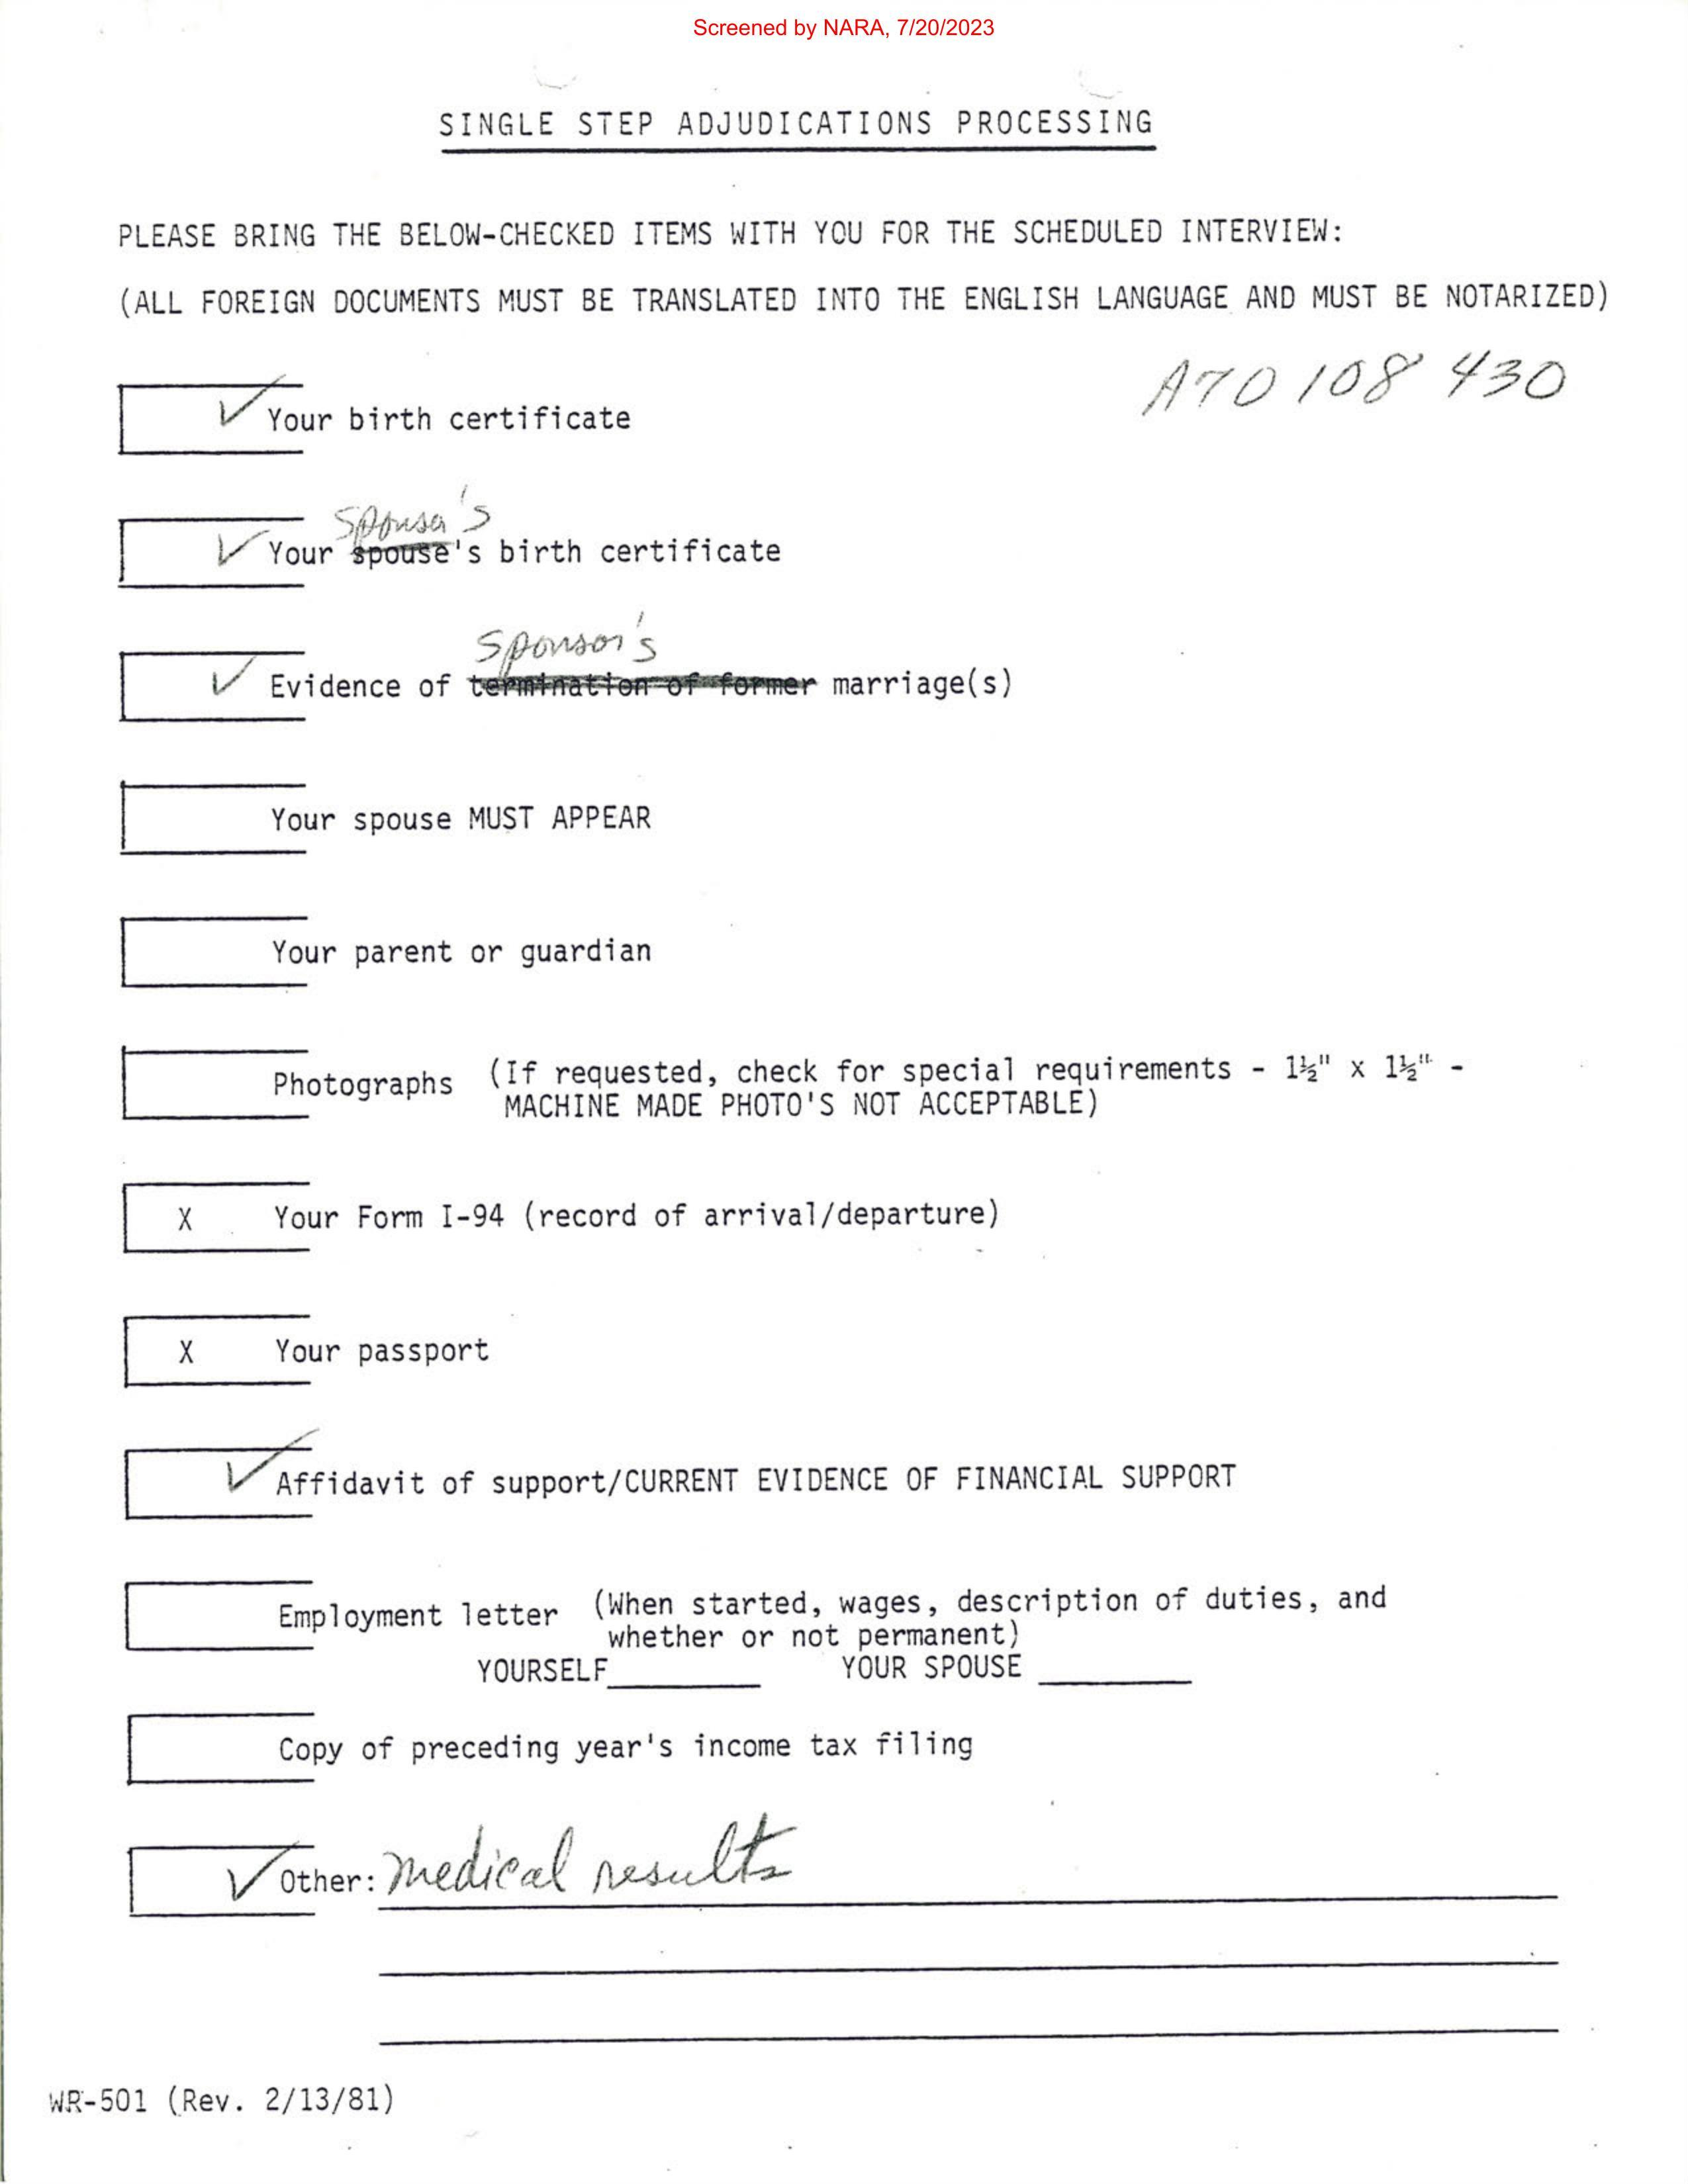 Screened by NARA, 7/20/2023
SINGLE STEP ADJUDICATIONS PROCESSING
PLEASE BRING THE BELOW-CHECKED ITEMS WITH YOU FOR THE SCHEDULED INTERVIEW:
(ALL FOREIGN DOCUMENTS MUST BE TRANSLATED INTO THE ENGLISH LANGUAGE AND MUST BE NOTARIZED)
A70 108 430
✓ Your birth certificate
✓ Your spouse's birth certificate
Sponsor's
✓ Evidence of termination of former marriage(s)
Your spouse MUST APPEAR
Your parent or guardian
Photographs (If requested, check for special requirements - 1½" x 1½" -
MACHINE MADE PHOTO'S NOT ACCEPTABLE)
X Your Form I-94 (record of arrival/departure)
X Your passport
✓ Affidavit of support/CURRENT EVIDENCE OF FINANCIAL SUPPORT
Employment letter (When started, wages, description of duties, and
whether or not permanent)
YOURSELF YOUR SPOUSE
Copy of preceding year's income tax filing
✓ Other: medical results
WR-501 (Rev. 2/13/81)